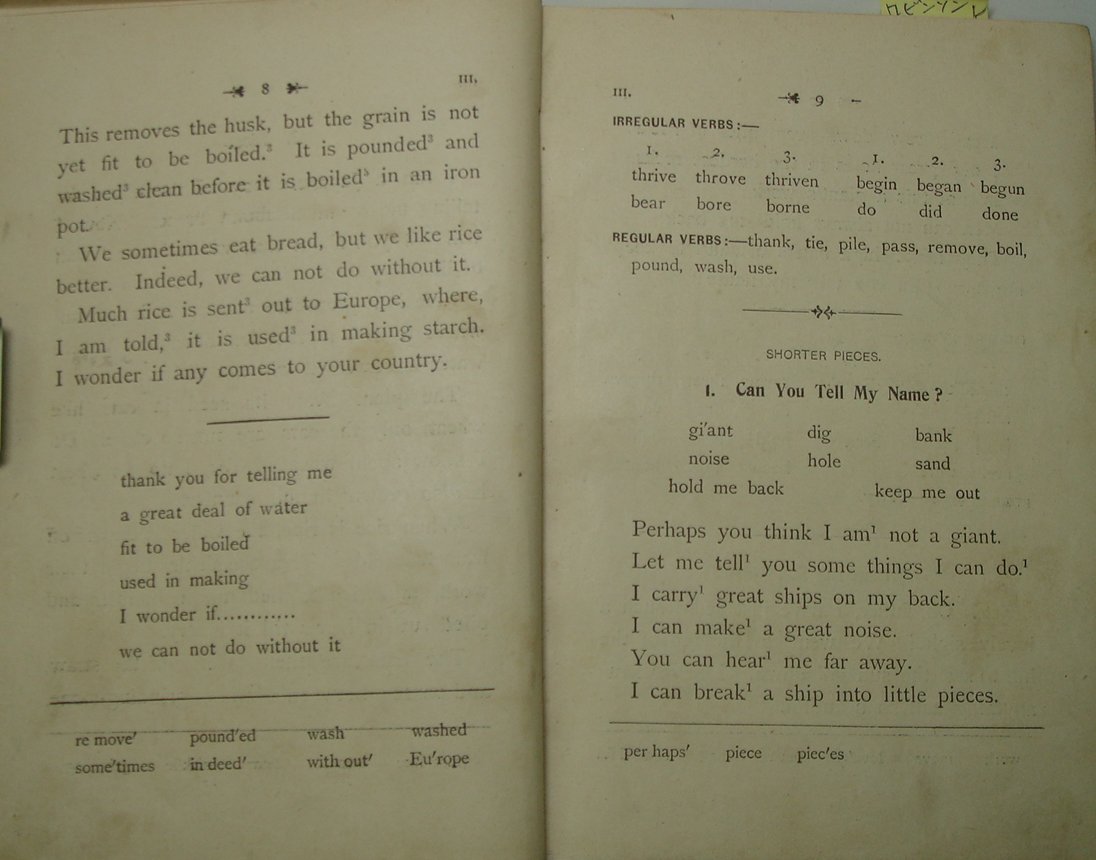 8
III.
This removes the husk, but the grain is not
yet fit to be boiled.³ It is pounded³ and
washed³ clean before it is boiled³ in an iron
pot.
We sometimes eat bread, but we like rice
better. Indeed, we can not do without it.
Much rice is sent³ out to Europe, where,
I am told,³ it is used³ in making starch.
I wonder if any comes to your country.
thank you for telling me
a great deal of water
fit to be boiled
used in making
I wonder if............
we can not do without it
re move′ pound′ed wash washed
some′times in deed′ with out′ Eu′rope
ロビンソン
III.
9
IRREGULAR VERBS:—
1. 2. 3. 1. 2. 3.
thrive throve thriven begin began begun
bear bore borne do did done
REGULAR VERBS:—thank, tie, pile, pass, remove, boil,
pound, wash, use.
SHORTER PIECES.
1. Can You Tell My Name?
gi′ant dig bank
noise hole sand
hold me back keep me out
Perhaps you think I am¹ not a giant.
Let me tell¹ you some things I can do.¹
I carry¹ great ships on my back.
I can make¹ a great noise.
You can hear¹ me far away.
I can break¹ a ship into little pieces.
per haps′ piece piec′es